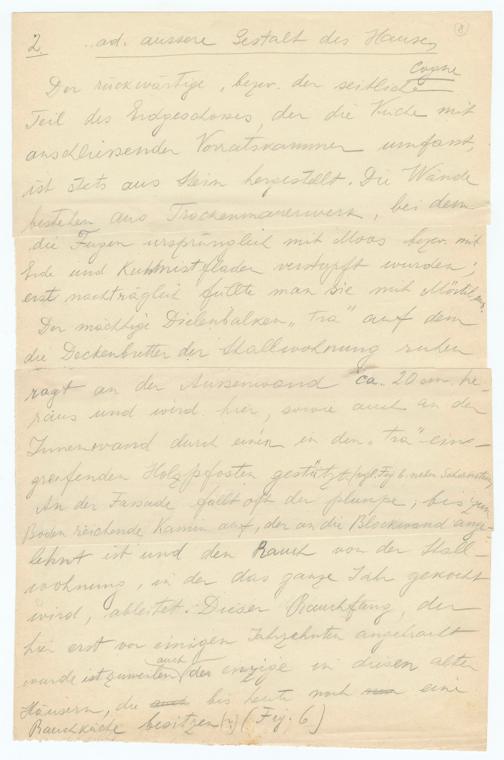 2. ad. äussere Gestalt des Hauses
8
Cogne
Der rückwärtige, bezw. der seitliche
Teil des Erdgeschosses, der die Küche mit
anschliessender Vorratskammer umfasst,
ist stets aus Stein hergestellt. Die Wände
bestehen aus Trockenmauerwerk, bei dem
die Fugen ursprünglich mit Moos bezw. mit
Erde und Kuhmistfladen verstopft wurden;
erst nachträglich füllte man sie mit Mörtel aus.
Der mächtige Dielenbalken „tra" auf dem
die Deckenbretter der Stallwohnung ruhen
ragt an der Aussenwand ca. 20 cm he-
raus und wird hier, sowie auch an der
Innenwand durch einen in den „tra" ein-
greifenden Holzpfosten gestützt (vgl. Fig 6. neben
An der Fassade fällt oft der plumpe, bis zum
Boden reichende Kamin auf, der an die Blockwand ange-
lehnt ist und den Rauch von der Stall-
wohnung, in der das ganze Jahr gekocht
wird, ableitet. Dieser Rauchfang, der
hier erst vor einigen Jahrzehnten angebracht
wurde ist zuweilen auch der einzige in diesen alten
Häusern, die bis heute noch eine
Rauchküche besitzen (Fig. 6)